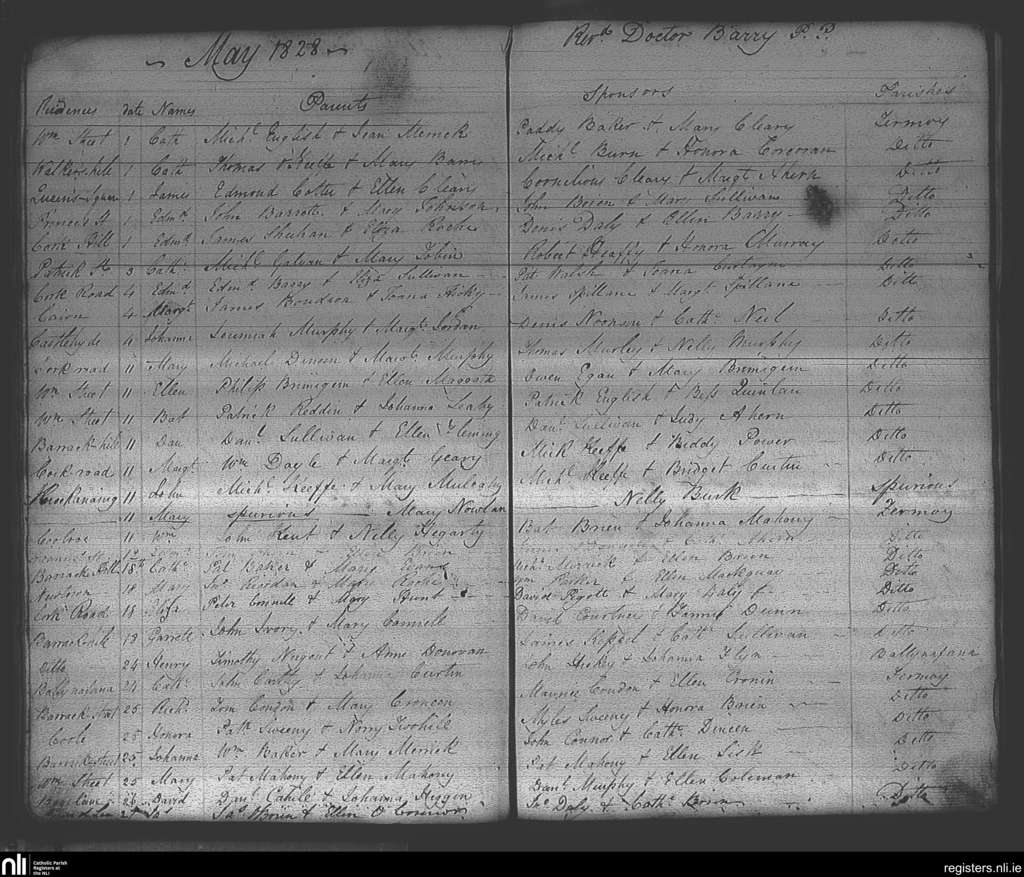 May 1828 Revd. Doctor Barry P. P.
Residences date Names Parents Sponsors Parishes
Wm Street 1 Cath Michl English & Joan Merrick Paddy Baker & Mary Cleary Fermoy
Walkershill 1 Cath Thomas O'Keeffe & Mary Barry Michl Burn & Honora Corcoran Ditto
Queens Square 1 James Edmond Cotter & Ellen Cleary Cornelious Cleary & Margt Ahern Ditto
Princes St 1 Edmd John Barrott & Mary Johnson John Brien & Mary Sullivan Ditto
Cork Hill 1 Edmd James Sheehan & Eliza Roche Denis Daly & Ellen Barry Ditto
Patrick St 3 Cath Michl Galvan & Mary Tobin Robert Heaffy & Honora Murray Ditto
Cork Road 4 Edmd Edmd Barry & Eliza Sullivan Pat Walsh & Joana Ditto
4 Margt James & Joana Hicky James Spillane & Margt Spillane Ditto
Castlehyde 4 Johanna Jeremiah Murphy & Margt Jordan Denis Noonan & Cath Neil Ditto
Cork road 11 Mary Michael Dineen & Margt Murphy Thomas Murley & Nelly Murphy Ditto
Wm Street 11 Ellen Philip Brimigem & Ellen Owen Egan & Mary Brimigem Ditto
Wm Street 11 Bat Patrick Reddin & Johanna Leahy Patrick English & Bess Quinlan Ditto
Barrack-hill 11 Dan Danl Sullivan & Ellen Fleming Danl Sullivan & Judy Ahern Ditto
Cork-road 11 Margt Wm Doyle & Margt Geary Mick Keeffe & Biddy Power Ditto
11 John Michl Keeffe & Mary Mulcahy Michl Keeffe & Bridget Curtin Ditto
11 Mary spurious Mary Nowlan Nelly Burk Spurious
Coolroe 11 Wm John Kent & Nelly Hegarty Bat Brien & Johanna Mahony Fermoy
Brien & Cath Ahern Ditto
Barrack Hill 18th Cath Pat Baker & Mary Michl Merrick & Ellen Brien Ditto
18 Mary Jno Riordan & Mary Roche & Ellen Mackguay Ditto
Cork Road 18 Eliza Peter Connell & Mary Hunt David Pigott & Mary Daly Ditto
13 Garrett John Ivory & Mary David Courtney & Dunn Ditto
Ditto 24 Henry Timothy Nugent & Anne Donovan James & Cath Sullivan Ditto
24 Cath John Carthy & Johanna Curtin John Hickey & Johanna Flyn
Barrack Street 25 Richd Tom Condon & Mary Croneen Maurice Condon & Ellen Cronin Fermoy
Coole 25 Honora Patk Sweeny & Norry Toohill Myles Sweeny & Honora Brien Ditto
Barrack street 25 Johanna Wm Baker & Mary Merrick John Connor & Cath Dineen Ditto
Wm Street 25 Mary Pat Mahony & Ellen Mahony Pat Mahony & Ellen Ditto
26 David Danl Cahill & Johanna Higgin Danl Murphy & Ellen Coleman Ditto
27 Jas Jas Brien & Ellen O Connor Jno Daly & Cath Brien
nli Catholic Parish
Registers at
the NLI
registers.nli.ie